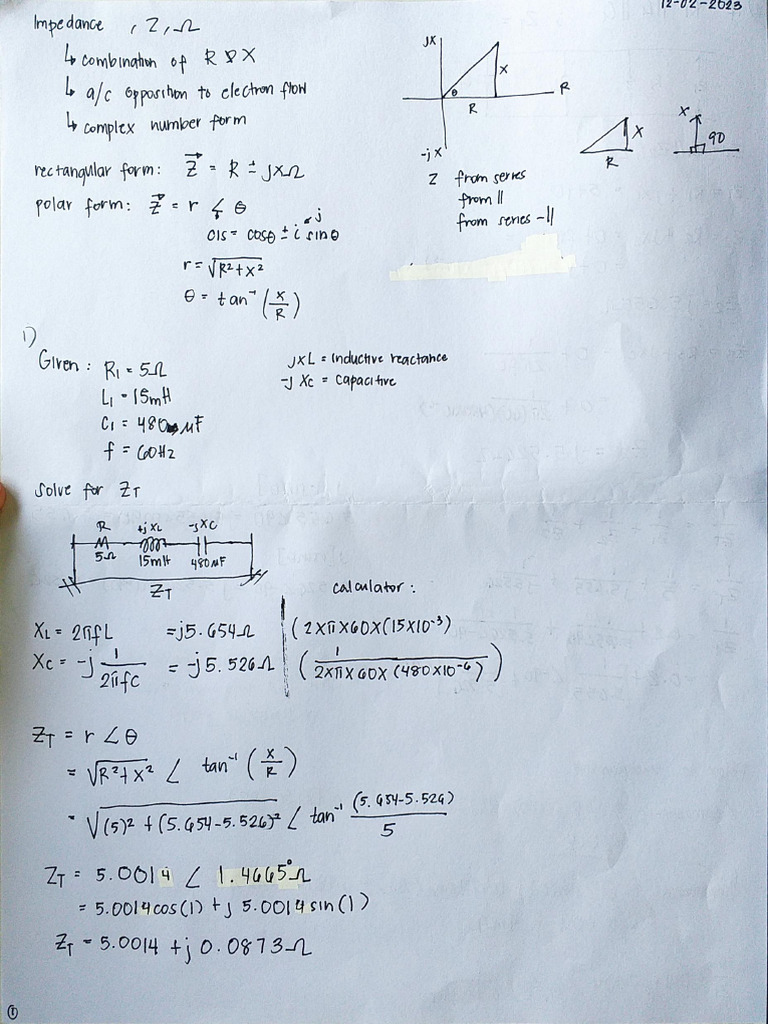 12-02-2023
Impedance , Z, Ω
↳ combination of R & X
↳ a/c opposition to electron flow
↳ complex number form
rectangular form: Z⃗ = R ± jXΩ
polar form: Z⃗ = r ∠ θ
cis = cosθ ± i sinθ
j
r = √R²+X²
θ = tan⁻¹ (X/R)
jX
X
θ
R
R
-jX
X
R
X
90
Z from series
from ||
from series-||
1)
Given: R1 = 5Ω
L1 = 15mH
C1 = 480 μF
f = 60Hz
jXL = Inductive reactance
-jXc = Capacitive
Solve for ZT
R +jXL -jXC
5Ω 15mH 480μF
ZT
calculator:
XL = 2πfL = j5.654Ω (2×π×60×(15×10⁻³)
XC = -j 1/2πfC = -j5.526Ω (1/2×π×60×(480×10⁻⁶))
ZT = r ∠θ
= √R²+X² ∠ tan⁻¹ (X/R)
= √(5)² + (5.654-5.526)² ∠ tan⁻¹ (5.654-5.526)/5
ZT = 5.0014 ∠ 1.4665°Ω
= 5.0014cos(1) + j 5.0014sin(1)
ZT = 5.0014 + j 0.0873Ω
1